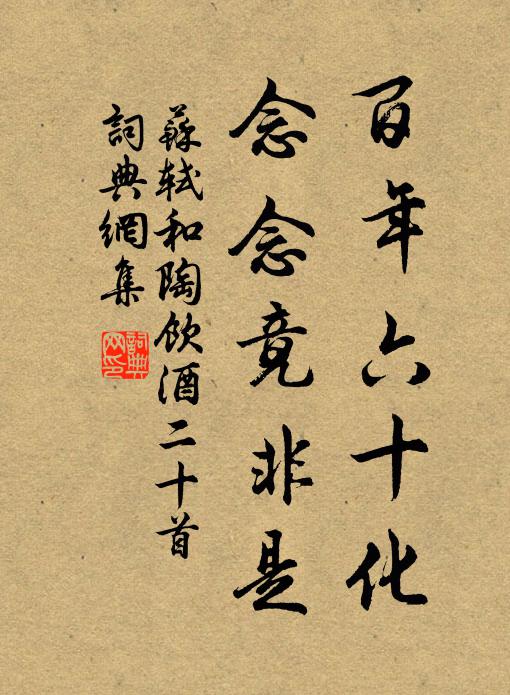 百年六十化
念念竟非是
蘇軾和陶飲酒二十首
詞典網集
詞典
网印